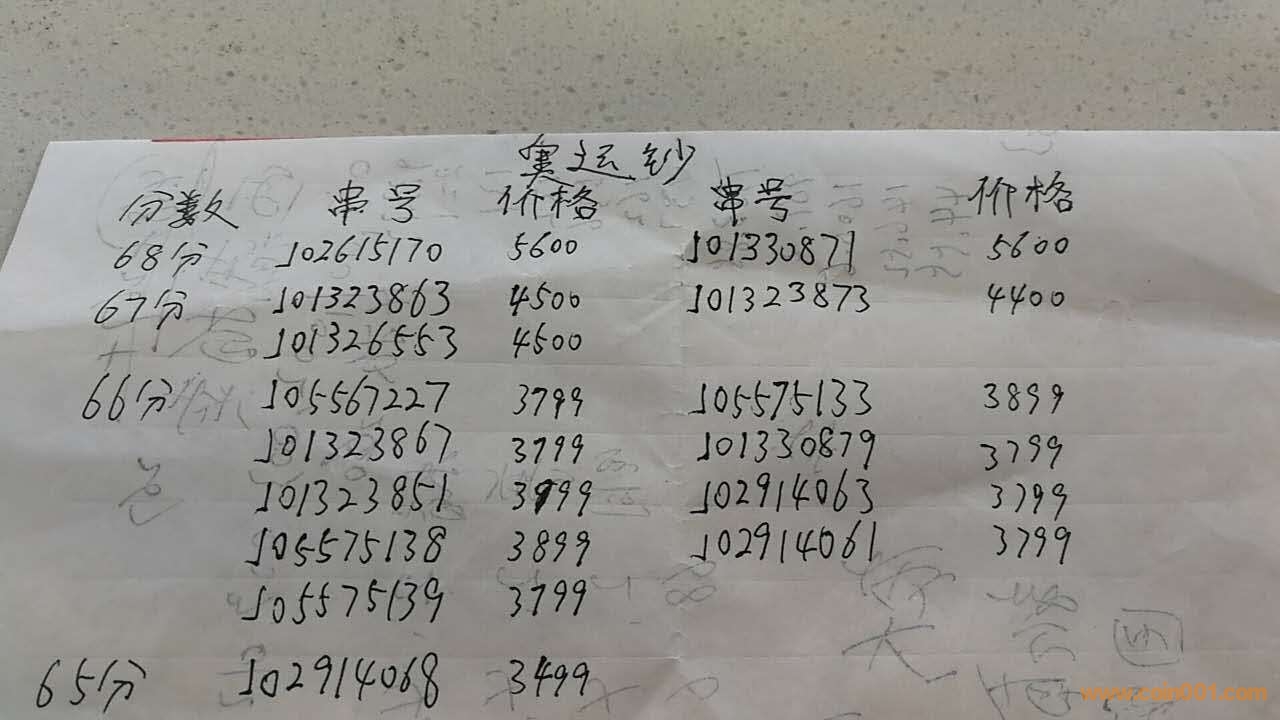 奥运钞
分数 串号 价格 串号 价格
68分 J02615170 5600 J01330871 5600
67分 J01323863 4500 J01323873 4400
J01326553 4500
66分 J05567227 3799 J05575133 3899
J01323867 3799 J01330879 3799
J01323851 3799 J02914063 3799
J05575138 3899 J02914061 3799
J05575139 3799
65分 J02914068 3499